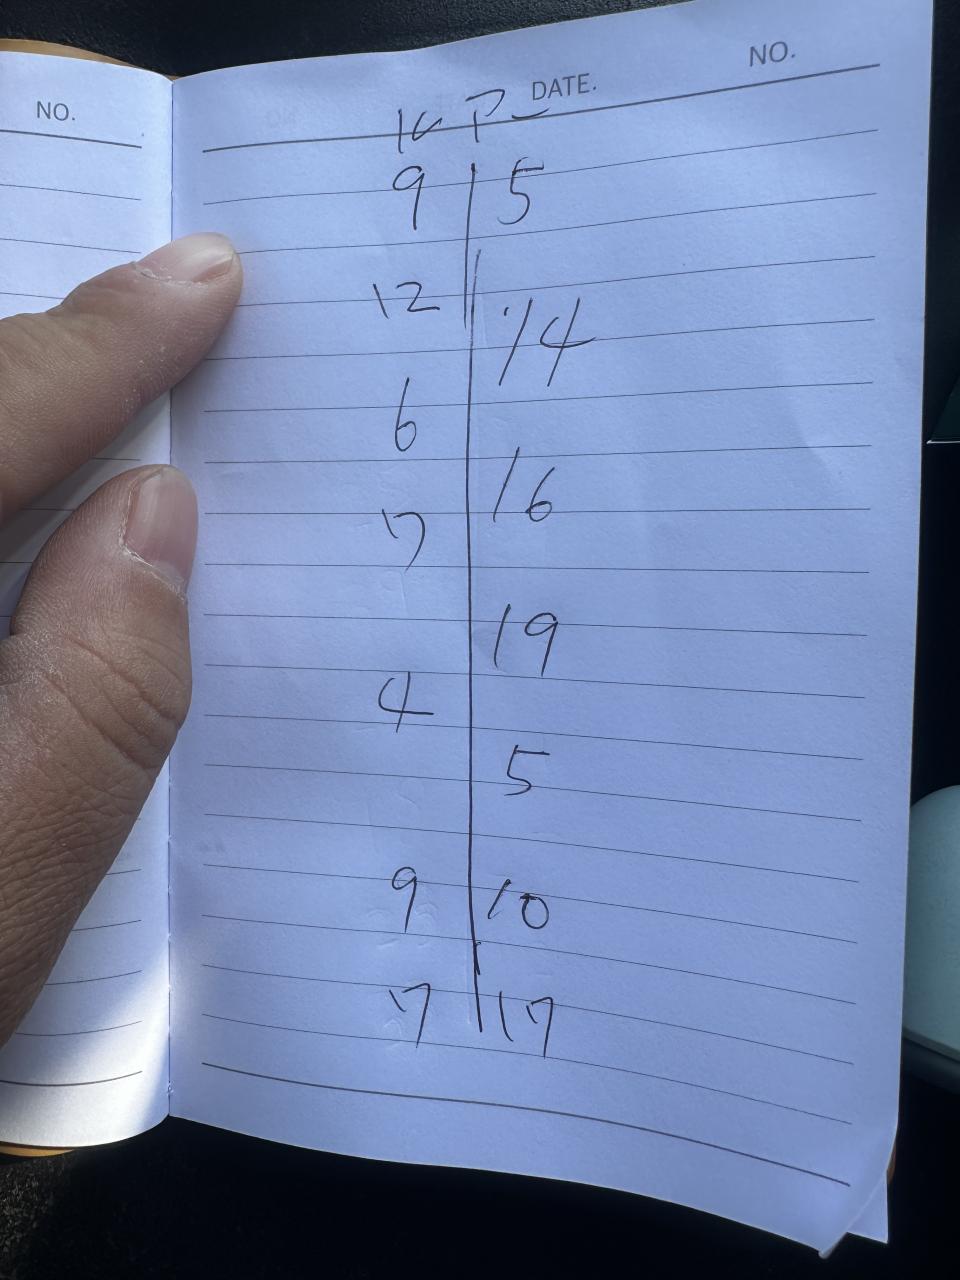 NO.
DATE. NO.
9 5
12
14
6
16
7
19
4
5
9 10
7 17